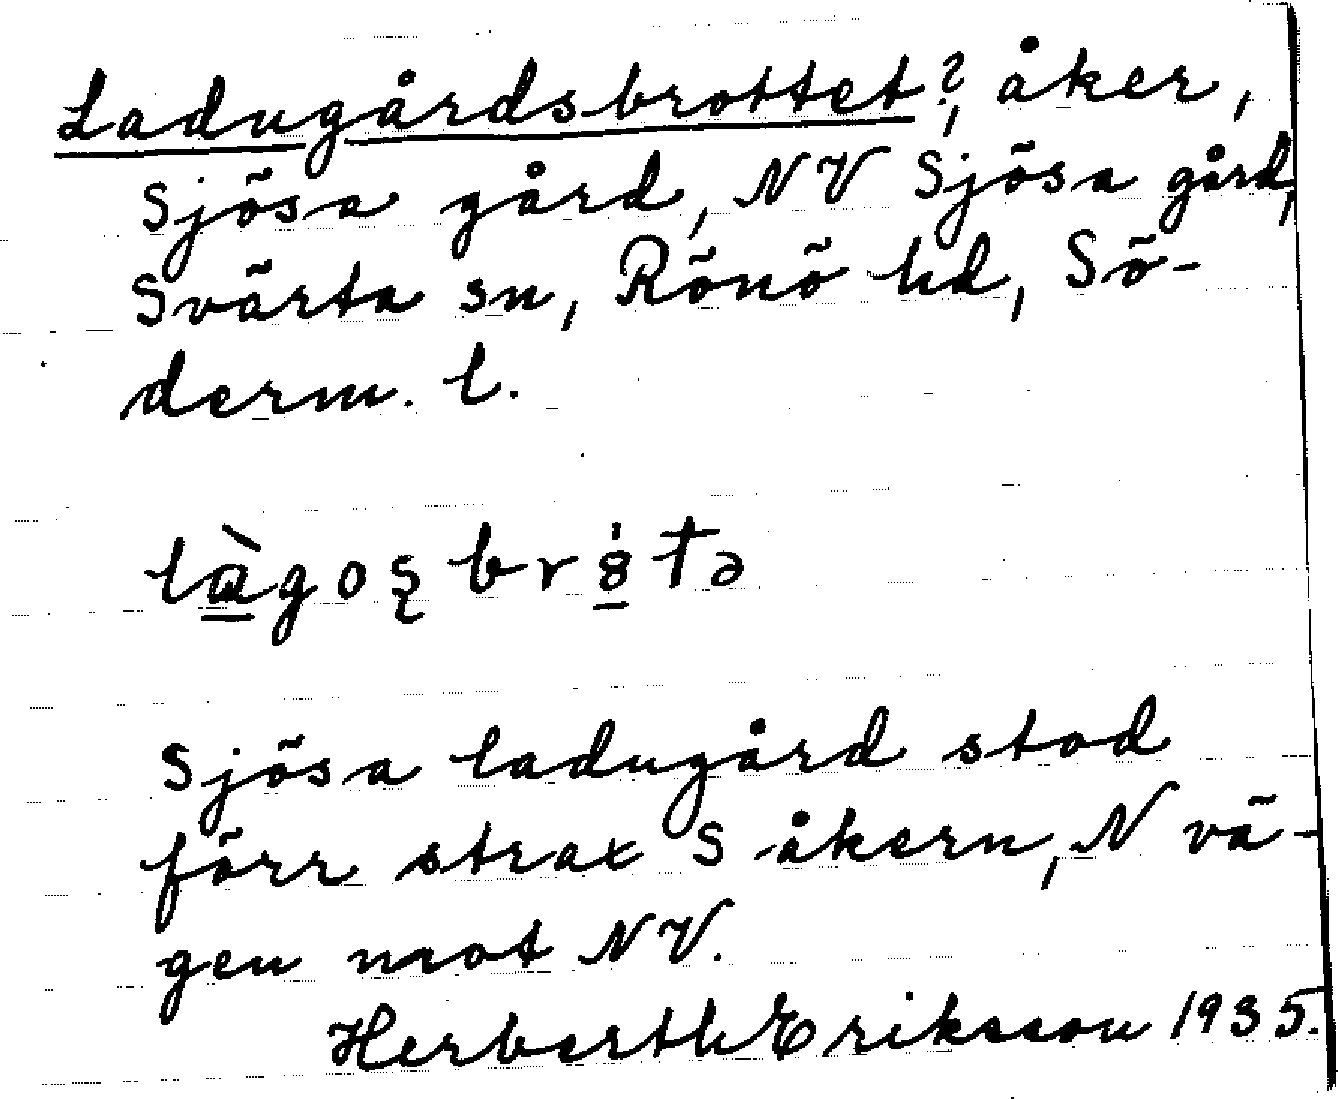 Ladugårdsbrottet?, åker,
Sjösa gård, NV Sjösa gård,
Svärta sn, Rönö hd, Sö-
derm. l.
làgosbr8́tə
Sjösa ladugård stod
förr strax S åkern, N vä-
gen mot NV.
Herberth Eriksson 1935.